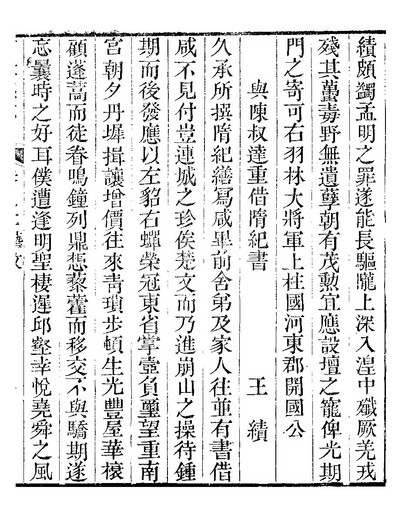 績頗獨孟明之罪遂能長驅隴上深入湟中殲厥羌戎
殘其蠆毒野無遺孽朝有茂勳宜應設壇之寵俾光期
門之寄可右羽林大將軍上柱國河東郡開國公
與陳叔達重借隋紀書
王績
久承所撰隋紀繕寫咸畢前舍弟及家人往並有書借
咸不見付豈連城之珍俟楚文而乃進崩山之操待鍾
期而後發應以左貂右蟬榮冠東省掌壼負璽望重南
宮朝夕丹墀揖讓增價往來青瑣步頓生光豐屋華榱
顧蓬蒿而徒眷鳴鐘列鼎想藜藿而移交不與驕期遂
忘曩時之好耳僕遭逢明聖棲遲邱壑幸悅堯舜之風